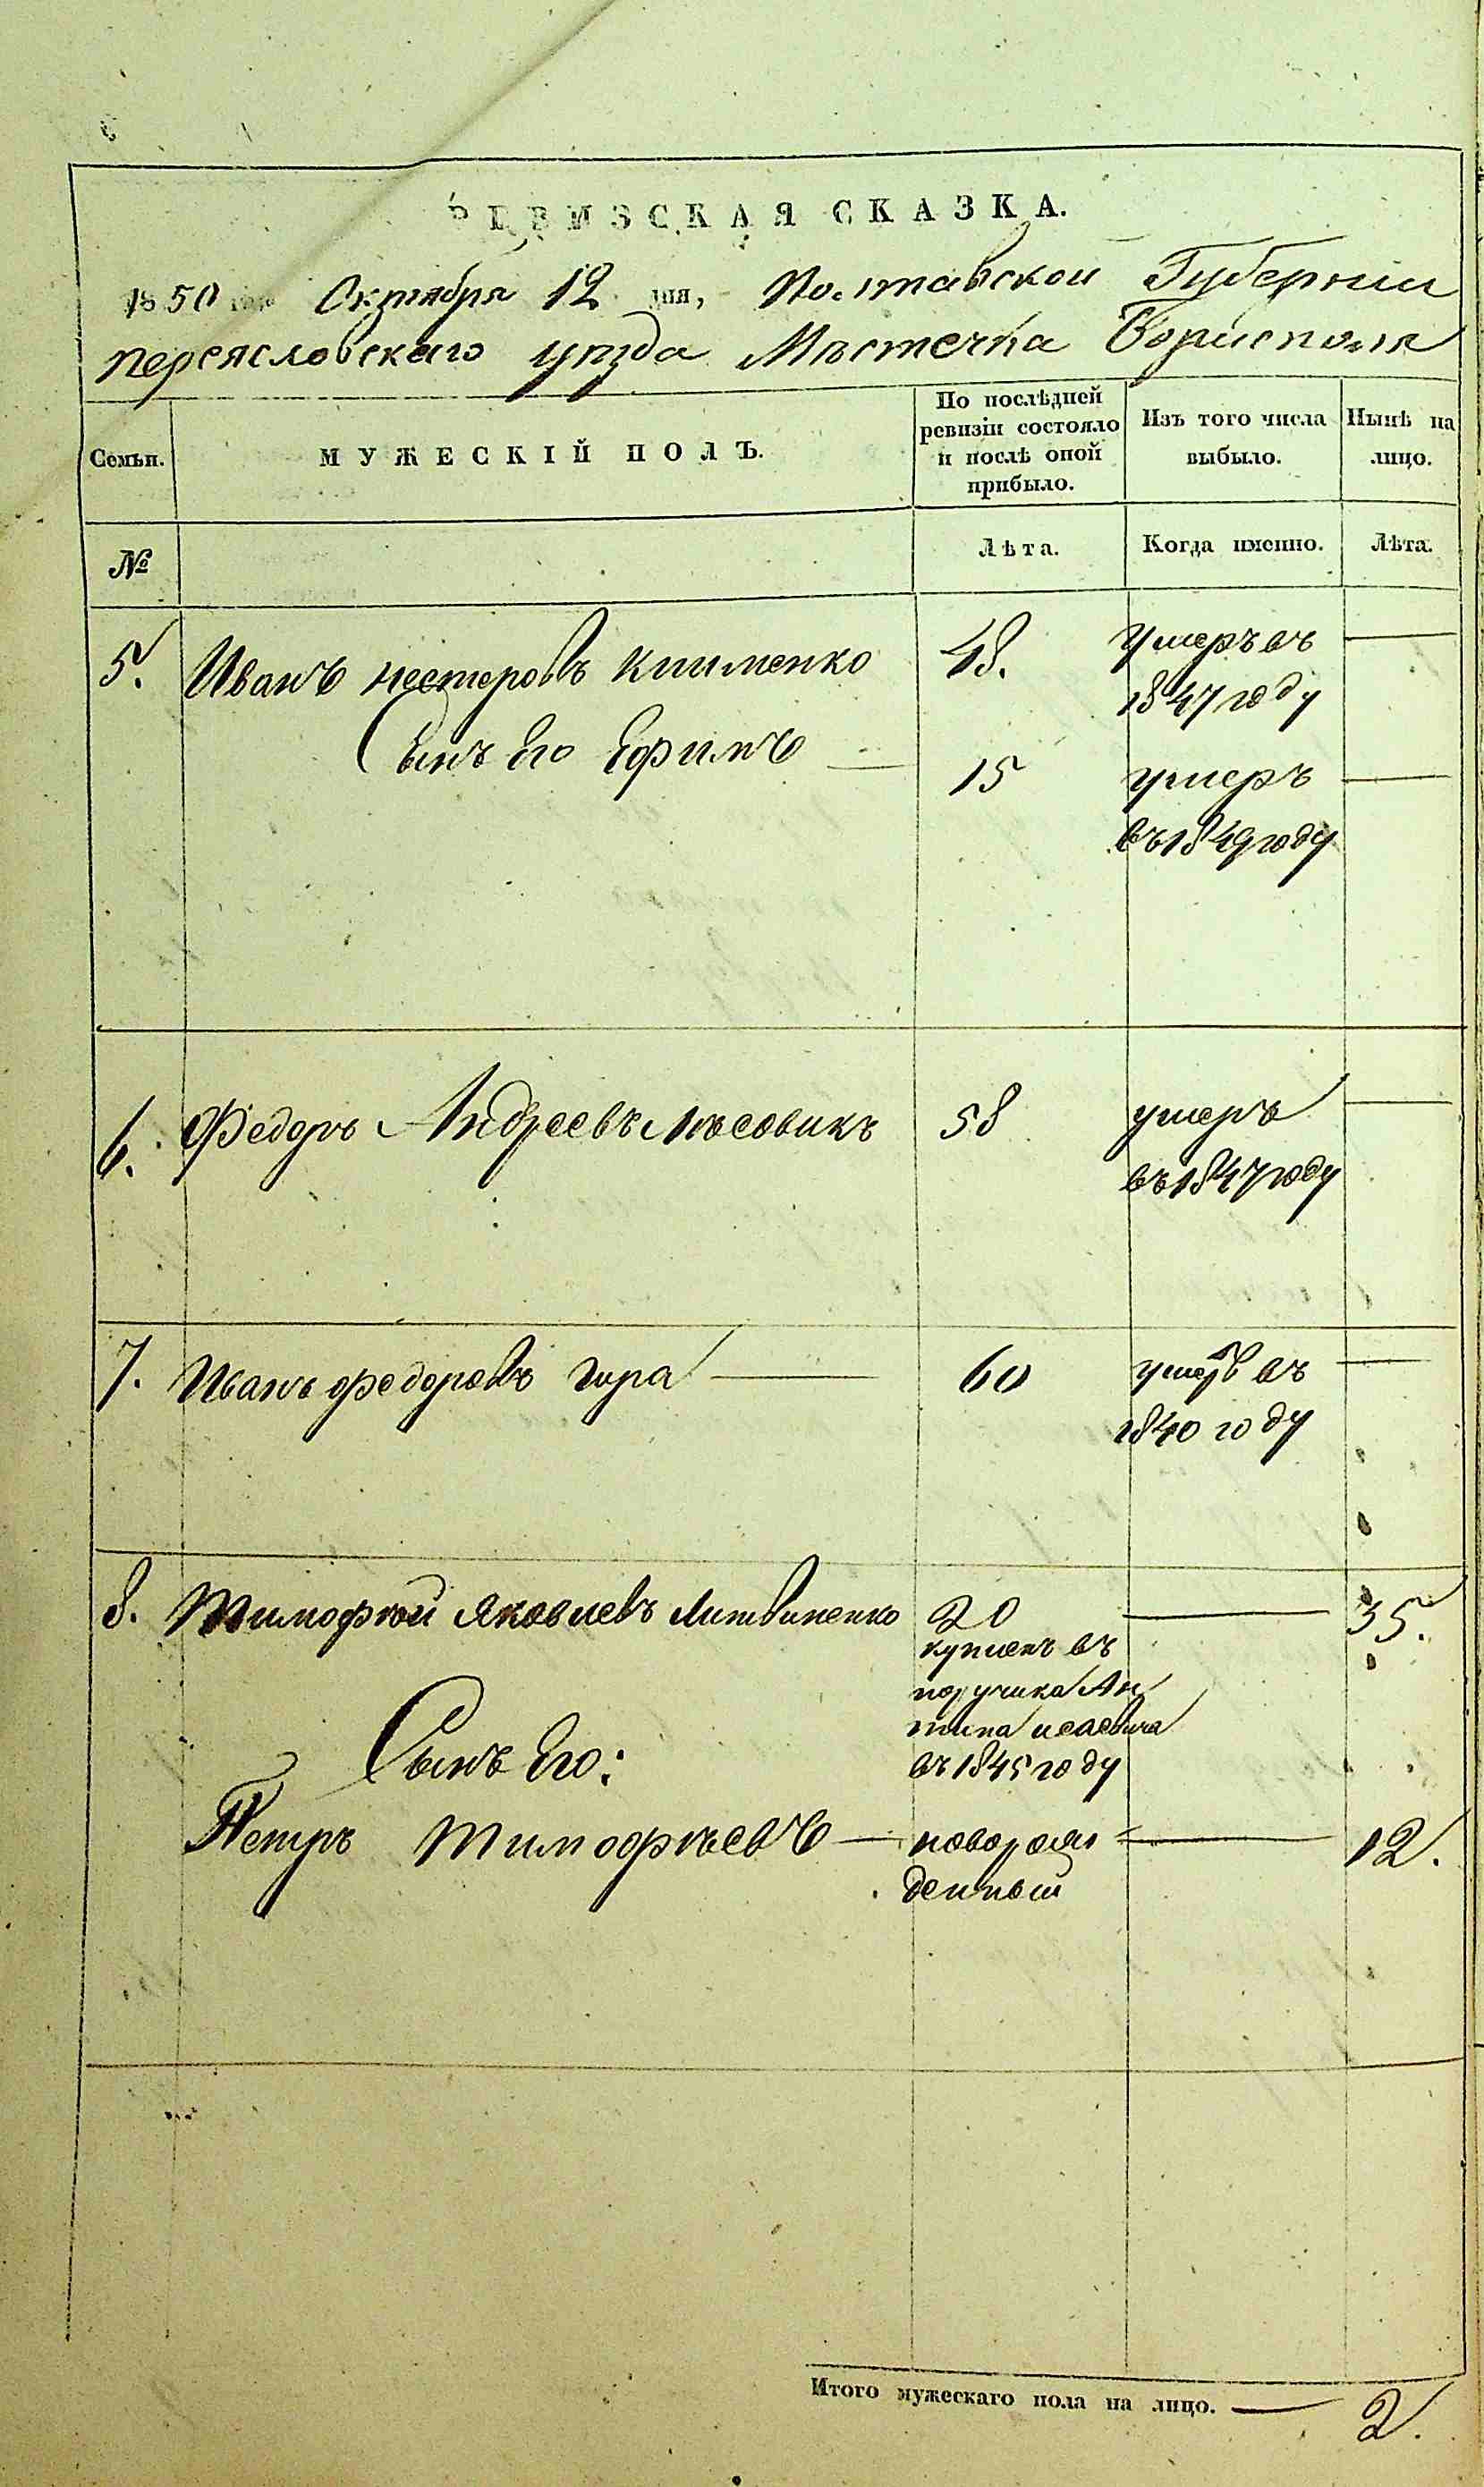 РЕВИЗСКАЯ СКАЗКА.
1850 года Октября 12 дня, Полтавской Губерніи
переясловскаго уѣзда Мѣстечка Борисполя
Семьи.
МУЖЕСКІЙ ПОЛЪ.
По послѣдней ревизіи состояло и послѣ оной прибыло.
Изъ того числа выбыло.
Нынѣ на лицо.
№
Лѣта.
Когда именно.
Лѣта.
5. Иванъ нестеровъ клименко 48. Умеръ въ —
1847 году
Сынъ Его Ефимъ — 15 умеръ —
въ 1849 году
6. Федоръ Андреевъ лѣсовикъ 58 умеръ —
въ 1847 году
7. Иванъ федоровъ гира — 60 умеръ въ —
1840 году
8. Тимофѣй Яковлевъ Литвиненко 20 — 35.
купленъ въ
поручика Ан
типа исаевича
въ 1845 году
Сынъ Его:
Петръ Тимофѣевъ — новорож — 12.
денный
Итого мужескаго пола на лицо. — 2.